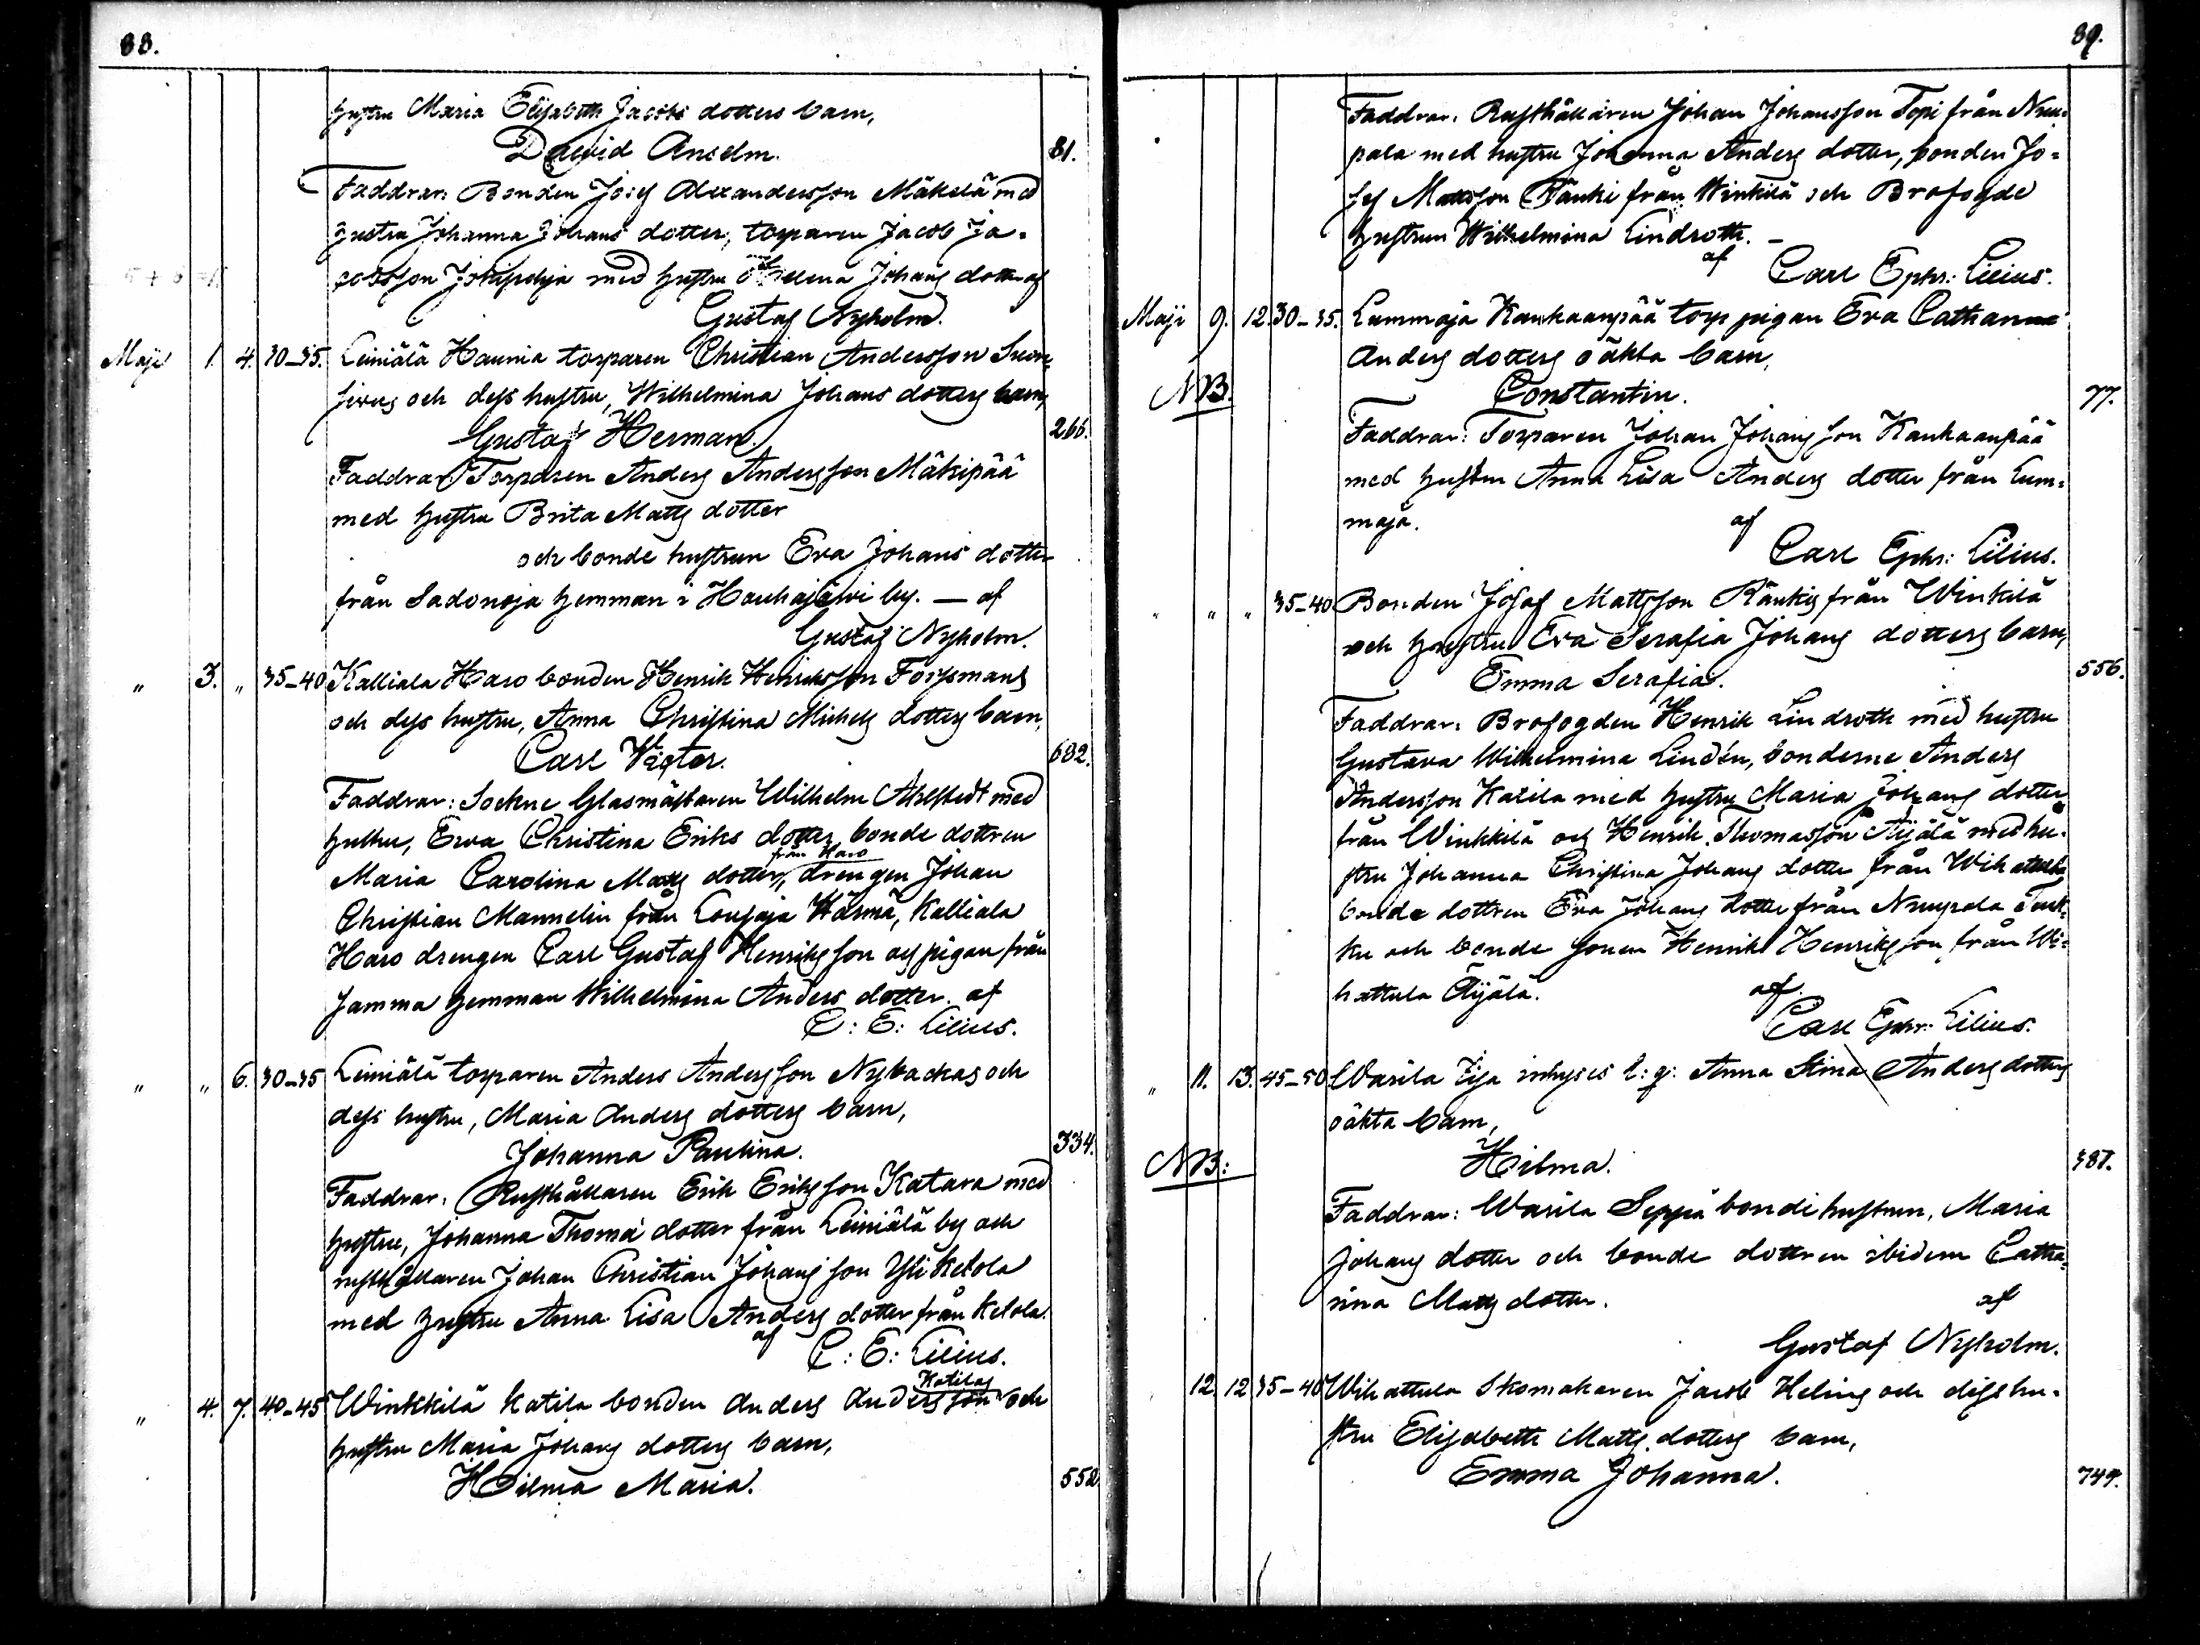 88.
hustru Maria Elisabeth Jacobs dotters barn,
David Anselm. 81.
Faddrar: Bonden Josef Alexandersson Mäkelä med
hustru Johanna Johans dotter, torparen Jacob Ja-
cobsson Jokipohja med hustru Helena Johans dotter af
Gustaf Nyholm.
Maji 1. 4. 30-35. Leiniälä Haunia torparen Christian Andersson
och dess hustru, Wilhelmina Johans dotters barn,
Gustaf Herman. 266.
Faddrar: Torparen Anders Andersson Mäkipää
med hustru Brita Matts dotter
och bonde hustrun Eva Johans dotter
från Sadonoja hemman i Hauhajärvi by. — af
Gustaf Nyholm.
" 3. " 35-40 Kalliala Haro bonden Henrik Henriksson Forssmans
och dess hustru, Anna Christina Michels dotters barn,
Carl Victor. 682.
Faddrar: Sockne Glasmästaren Wilhelm Ahlstedt med
hustru, Ewa Christina Eriks dotter, bonde dottren
från Haro
Maria Carolina Matts dotter, drengen Johan
Christian Mannelin från Loussaja Härmä, Kalliala
Haro drengen Carl Gustaf Henriksson och pigan från
Jamma hemman Wilhelmina Anders dotter. af
C: E: Lilius.
" " 6. 30-35 Leiniälä torparen Anders Andersson Nybackas och
dess hustru, Maria Anders dotters barn,
Johanna Paulina. 334.
Faddrar: Rusthållaren Erik Eriksson Katara med
hustru, Johanna Thomæ dotter från Leiniälä by och
rusthållaren Johan Christian Johansson Yli Ketola
med hustru Anna Lisa Anders dotter från Ketola.
af C: E: Lilius.
Katilas
" 4. 7. 40-45 Winkkilä Katila bonden Anders Andersson och
hustru Maria Johans dotters barn,
Hilma Maria. 552
89.
Faddrar: Rusthållaren Johan Johansson Topi från Nuu-
pala med hustru Johanna Anders dotter, bonden Jo-
sef Mattsson Ränki från Winkilä och Brofogde
hustrun Wilhelmina Lindroth. —
af
Carl Ephr: Lilius.
Maji 9. 12. 30-35. Lammaja Kankaanpää torp pigan Eva Catharina
Anders dotters oäkta barn,
NB. Constantin. 77.
Faddrar: Torparen Johan Johansson Kankaanpää
med hustru Anna Lisa Anders dotter från Lam-
maja. af
Carl Ephr: Lilius.
" " " 35-40 Bonden Josef Mattsson Ränkis från Winkilä
och hustru Eva Serafia Johans dotters barn,
Emma Serafia. 556.
Faddrar: Brofogden Henrik Lindroth med hustru
Gustava Wilhelmina Lindén, bönderne Anders
Andersson Katila med hustru Maria Johans dotter
från Winkkilä och Henrik Thomasson Äijälä med hu-
stru Johanna Christina Johans dotter från Wihattula
bonde dottren Eva Johans dotter från Nuupala
och bonde sonen Henrik Henriksson från Wi-
hattula Äijälä. af
Carl Ephr: Lilius.
" 11. 13. 45-50 Warila Eija inhyses l: q: Anna Stina Anders dotters
oäkta barn,
NB: Hilma. 387.
Faddrar: Warila Seppä bonde hustrun, Maria
Johans dotter och bonde dottren ibidem Catha-
rina Matts dotter. af
Gustaf Nyholm.
12. 12 35-40 Wihattula Skomakaren Jacob Helins och dess hu-
stru Elisabeth Matts dotters barn,
Emma Johanna. 749.